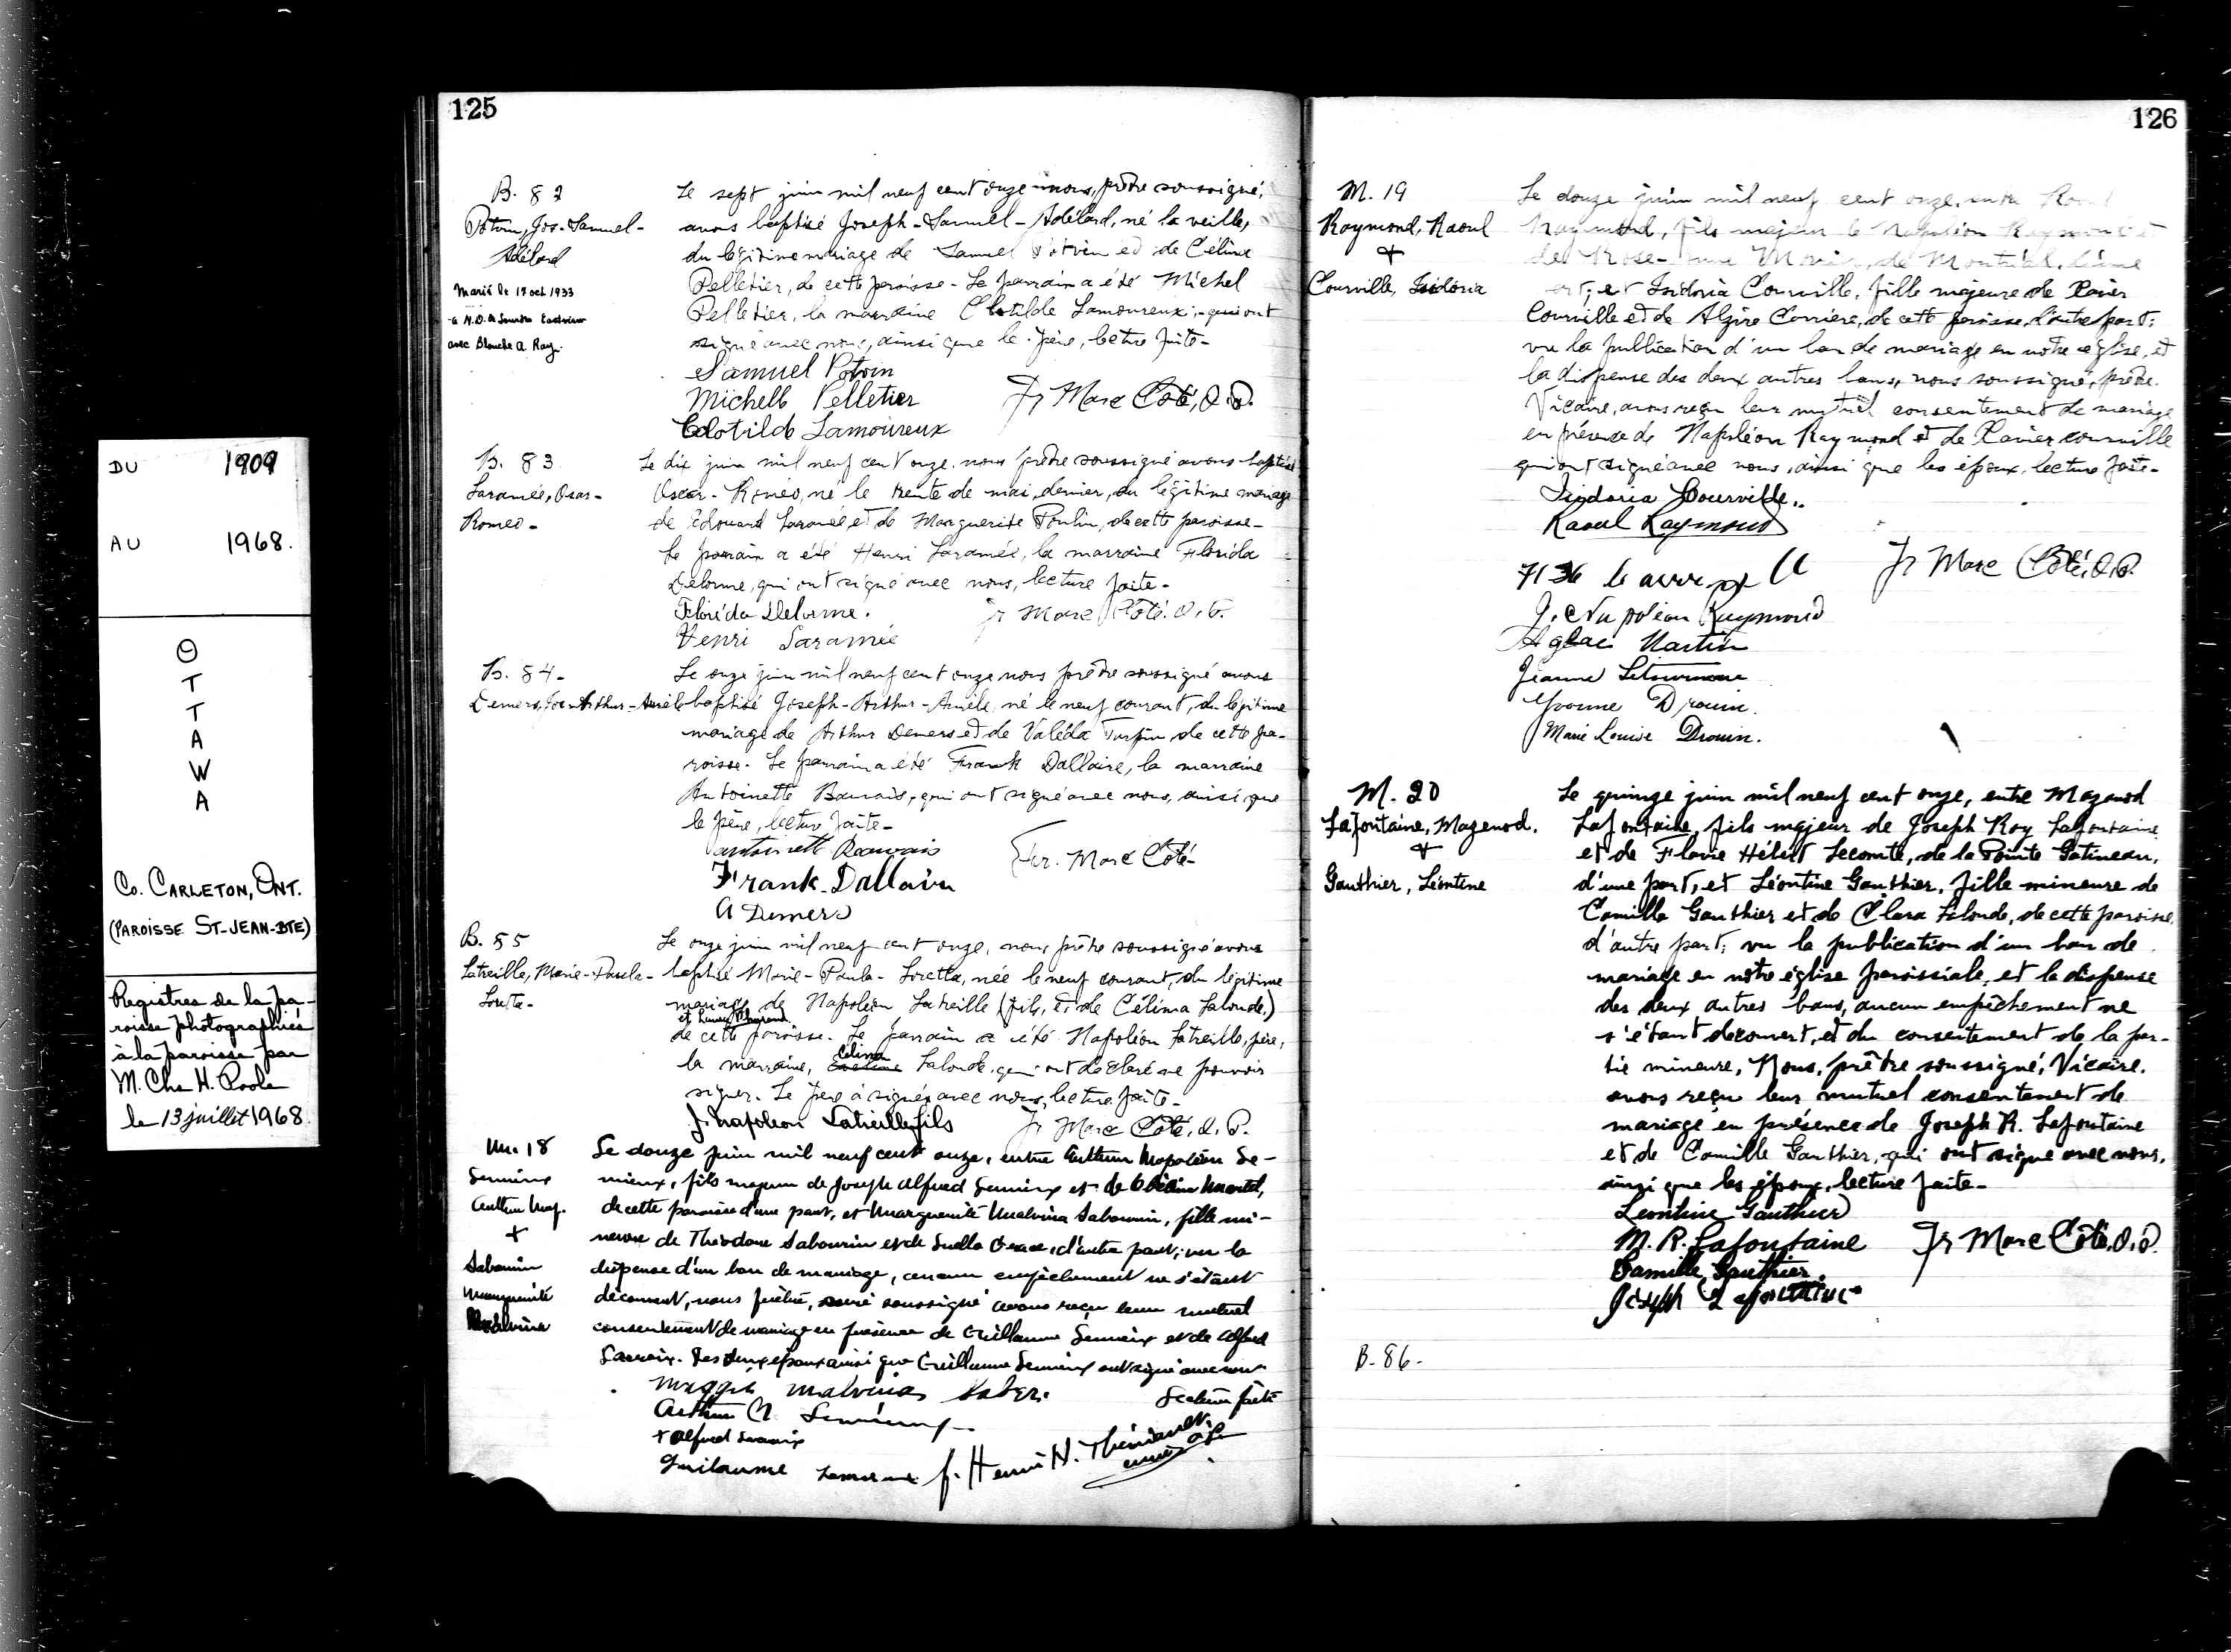 DU 1909
AU 1968.
O
T
T
A
W
A
Co. CARLETON, ONT.
(PAROISSE ST-JEAN-BTE)
Registres de la pa-
roisse photographiés
à la paroisse par
M. Chs H. Poole
le 13 juillet 1968
125
B. 82
Potvin, Jos-Samuel-
Adélard
Marié le 1933
à N.D. de Lourdes Eastview
avec Blanche A. Ray.
Le sept juin mil neuf cent onze nous, prêtre soussigné,
avons baptisé Joseph-Samuel-Adélard, né la veille,
du légitime mariage de Samuel Potvin et de Céline
Pelletier, de cette paroisse - Le parrain a été Michel
Pelletier, la marraine Clotilde Lamoureux, qui ont
signé avec nous, ainsi que le père, lecture faite-
Samuel Potvin
Michell Pelletier
Fr Marc Coté, O.P.
Clotilde Lamoureux
B. 83
Laramée, Oscar-
Romeo-
Le dix juin mil neuf cent onze, nous prêtre soussigné avons baptisé
Oscar-Roméo, né le trente de mai dernier, du légitime mariage
de Edouard Laramée et de Marguerite Poulin, de cette paroisse-
Le parrain a été Henri Laramée, la marraine Florida
Delorme, qui ont signé avec nous, lecture faite-
Florida Delorme.
Fr Marc Coté. O.P.
Henri Laramée
B. 84-
Demers, Jos-Arthur-Aurèle
Le onze juin mil neuf cent onze nous prêtre soussigné avons
baptisé Joseph-Arthur-Aurèle, né le neuf courant, du légitime
mariage de Arthur Demers et de Valéda Turpin de cette pa-
roisse. Le parrain a été Frank Dallaire, la marraine
Antoinette Beauvais, qui ont signé avec nous, ainsi que
le père, lecture faite-
Antoinette Beauvais
Fr. Marc Coté-
Frank Dallaire
A Demers
B. 85
Latreille, Marie-Paula-
Loretta-
Le onze juin mil neuf cent onze, nous prêtre soussigné avons
baptisé Marie-Paula-Loretta, née le neuf courant, du légitime
mariage de Napoléon Latreille (fils, et de Célima Lalonde,)
de cette paroisse. Le parrain a été Napoléon Latreille, père,
la marraine, Célima Lalonde, qui ont déclaré ne pouvoir
signer. Le père a signé avec nous, lecture faite-
J. Napoleon Latreille fils
Fr Marc Coté, O.P.
M. 18
Lemieux
Arthur Nap.
+
Sabourin
Marguerite
Malvina
Le douze juin mil neuf cent onze, entre Arthur Napoléon Le-
mieux, fils majeur de Joseph Alfred Lemieux et de Martel,
de cette paroisse d'une part, et Marguerite Malvina Sabourin, fille mi-
neure de Théodore Sabourin et de d'autre part; vu la
dispense d'un ban de mariage, aucun empêchement ne s'étant
découvert, nous prêtre, curé soussigné avons reçu leur mutuel
consentement de mariage en présence de Guillaume Lemieux et de Alfred
Lacroix. Les deux époux ainsi que Guillaume Lemieux ont signé avec nous
Lecture faite
Maggie Malvina
Arthur N. Lemieux
+ Alfred Lacroix
Guilaume
f. Henri H.
126
M. 19
Raymond, Raoul
+
Courville, Isidoria
Le douze juin mil neuf cent onze, entre Raoul
Raymond, fils majeur de Napoléon Raymond et
de Rose- Morin, de Montréal, d'une
part, et Isidoria Courville, fille majeure de Xavier
Courville et de Alzire Carrière, de cette paroisse, d'autre part:
vu la publication d'un ban de mariage en notre église, et
la dispense des deux autres bans, nous soussigné, prêtre
Vicaire, avons reçu leur mutuel consentement de mariage
en présence de Napoléon Raymond et de Xavier Courville
qui ont signé avec nous, ainsi que les époux, lecture faite-
Isidoria Courville.
Raoul Raymond
Fr Marc Coté, O.P.
J. Napoléon Raymond
Aglaé Martin
Jeanne
Yvonne Drouin.
Marie Louise Drouin.
M. 20
Lafontaine, Mazenod.
+
Gauthier, Léontine
Le quinze juin mil neuf cent onze, entre Mazenod
Lafontaine, fils majeur de Joseph Roy Lafontaine
et de Flavie Hébert Lecomte, de la Pointe Gatineau,
d'une part, et Léontine Gauthier, fille mineure de
Camille Gauthier et de Clara Lalonde, de cette paroisse,
d'autre part; vu la publication d'un ban de
mariage en notre église paroissiale, et la dispense
des deux autres bans, aucun empêchement ne
s'étant découvert, et du consentement de la par-
tie mineure, Nous, prêtre soussigné, Vicaire,
avons reçu leur mutuel consentement de
mariage en présence de Joseph R. Lafontaine
et de Camille Gauthier, qui ont signé avec nous,
ainsi que les époux, lecture faite-
Leontine Gauthier
M. R. Lafontaine
Fr Marc Coté, O.P.
Camille Gauthier.
Joseph Lafontaine
B. 86-